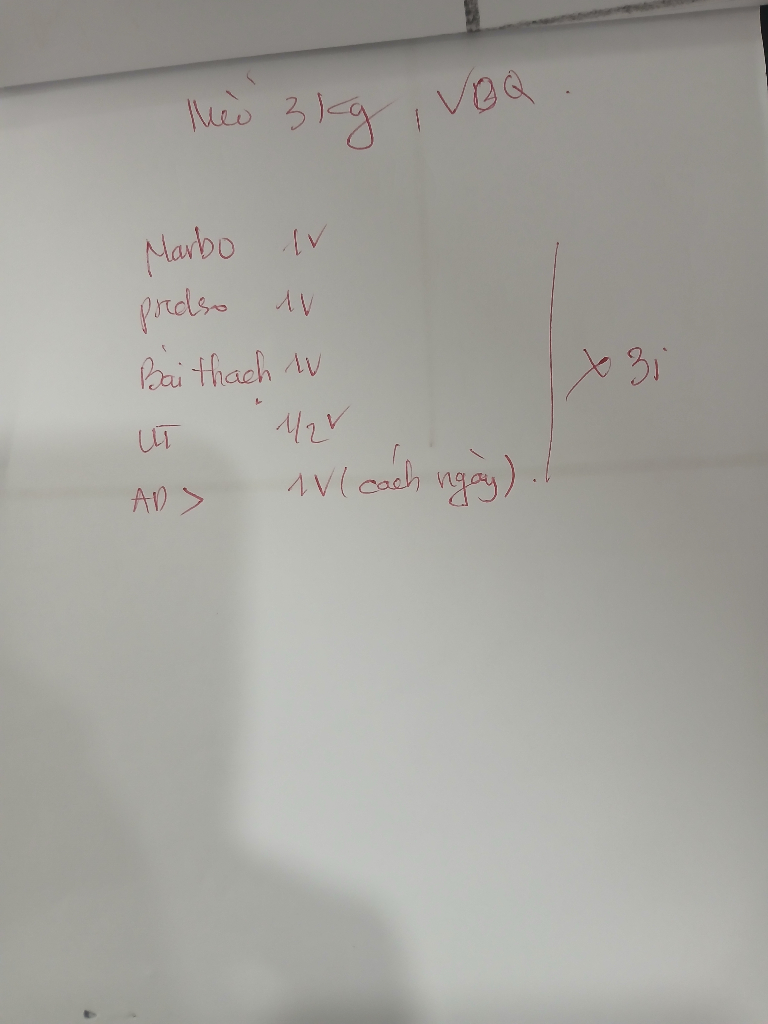 Mèo 3 kg, VBQ.
Marbo 1V
predso 1V
Bài thạch 1V
UT 1/2 V
AD > 1V (cách ngày).
x 3i